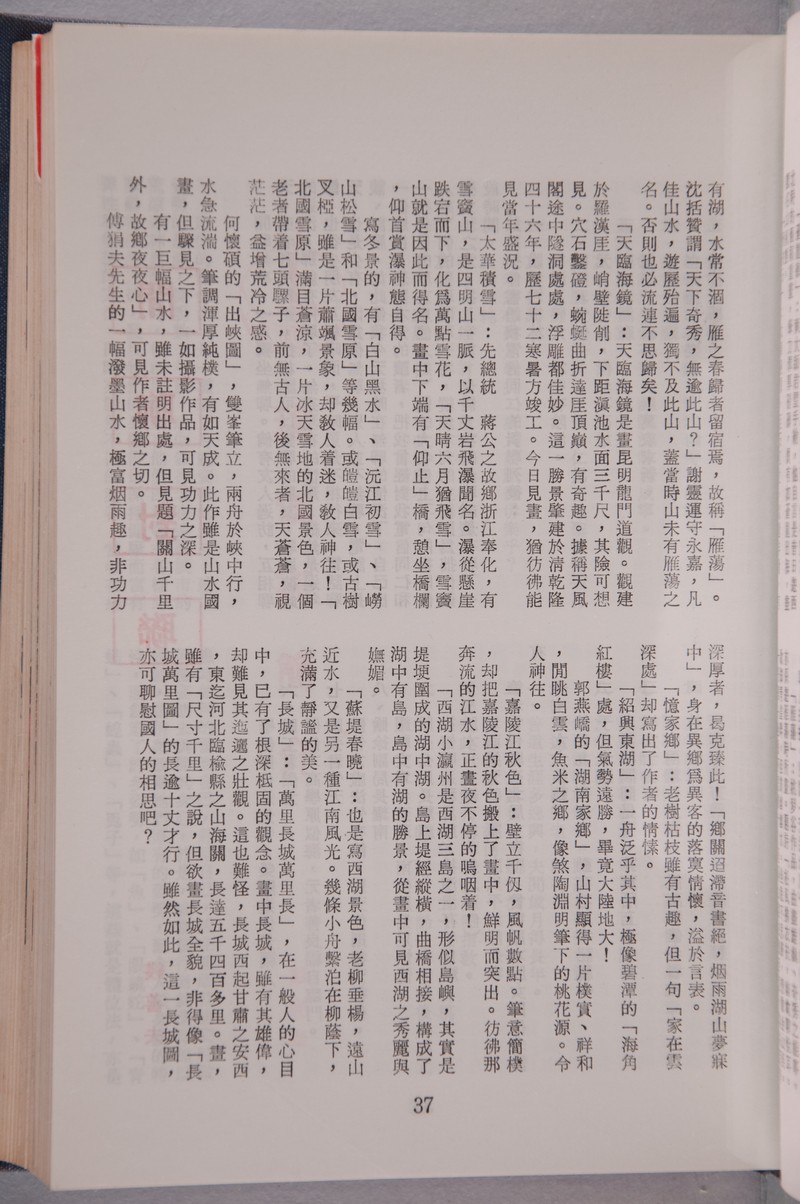 有湖，水常不涸，雁之春歸者留宿焉，故稱「雁蕩」。
沈括贊謂「天下奇秀，無逾此山？」謝靈運守永嘉，凡
佳山水，遊歷殆遍，獨不及此山，蓋當時山未有雁蕩之
名。否則也必流連不思歸矣！
「天臨海鏡」：天臨海鏡是畫昆明龍門道觀。觀建
於羅漢厓，峭壁陡削，下距滇池水面三千尺，其險可想
見。穴石鑿磴，蜿蜒曲折達厓頂巔，有奇趣。據稱天風
閣途中隧洞處處，浮雕都佳妙。這一勝景肇建於清乾隆
四十六年，歷七十二寒暑方竣工。今日見畫，猶彷彿能
見當年盛況。
「太華積雪」：先總統　蔣公之故鄉浙江奉化，有
雪竇山，是四明山一脈，以千丈岩飛瀑聞名。瀑從懸崖
跌宕而下，化爲萬點雪花，「天晴六月猶飛雪」，雪竇
山就是因此而得名。畫中下端有「仰止」橋，憩坐橋欄
，仰首賞瀑神態自得。
寫冬景的，有「白山黑水」、「沅江初雪」、「嶗
山松雪」和「北國雪原」等幾幅。或皚皚白雪，或古樹
叉椏，雖是一片蕭颯景象，却教人着迷，教人神往！「
北國雪原」滿目蒼涼，一片冰天雪地的北國景色，一個
老者帶着七頭騾子，前無古人，後無來者，天蒼蒼，視
茫茫，益增荒冷之感。
何懷碩的「出峽圖」，雙峯筆立，兩舟於峽中行，
水急流湍。筆調渾厚純樸，有如天成。此作雖是山水國
畫，但驟見之下，一如攝影作品，可見功力之深。
有一巨幅山水，雖未註明出處，但見題「關山千里
外，故鄉夜夜心」，可見作者懷鄉之切。
傅狷夫先生的一幅潑墨山水，極富烟雨趣，非功力
深厚者，曷克臻此！「鄉關迢滯音書絕，烟雨湖山夢寐
中」，身在異鄉爲異客的落寞情懷，溢於言表。
「憶家鄉」：老樹枯枝雖有古趣，但一句「家在雲
深處」却寫出了作者的情愫。
「紹興東湖」：一舟泛乎其中，極像碧潭的「海角
紅樓」處，但氣勢遠勝，畢竟大陸地大！
郭燕嶠的「湖南家鄉」，山村顯得一片樸實、祥和
，閒眺白雲，魚米之鄉，像煞陶淵明筆下的桃花源。令
人神往。
「嘉陵江秋色」：壁立千仭，風帆數點。筆意簡樸
，却把嘉陵江的秋色搬上了畫中，鮮明而突出。彷彿那
奔流的江水，正晝夜不停的嗚咽着！
「西湖小瀛州是西湖三島之一，形似島嶼，其實是
堤埂圍成的湖中湖。島上堤經縱橫，曲橋相接，構成了
湖中有島，島中有湖的勝景，從畫中可見西湖之秀麗與
嫵媚。
「蘇堤春曉」：也是寫西湖景色，老柳垂楊，遠山
近水，又是另一種江南風光。幾條小舟繫泊在柳蔭下，
充滿了靜謐的美。
「長城」：「萬里長城萬里長」，在一般人的心目
中，已有了根深柢固的觀念。畫中長城，雖有其雄偉，
却難見其迤邐之壯觀。這也難怪，長城西起甘肅之安西
，東迄河北臨檢縣之山海關，長達五千四百多里。畫，
雖有「尺寸千里」之說，但欲畫長城全貌，非得像「長
城萬里圖」的長逾十丈才行。雖然如此，這一長城圖，
亦可聊慰國人的相思吧？
37